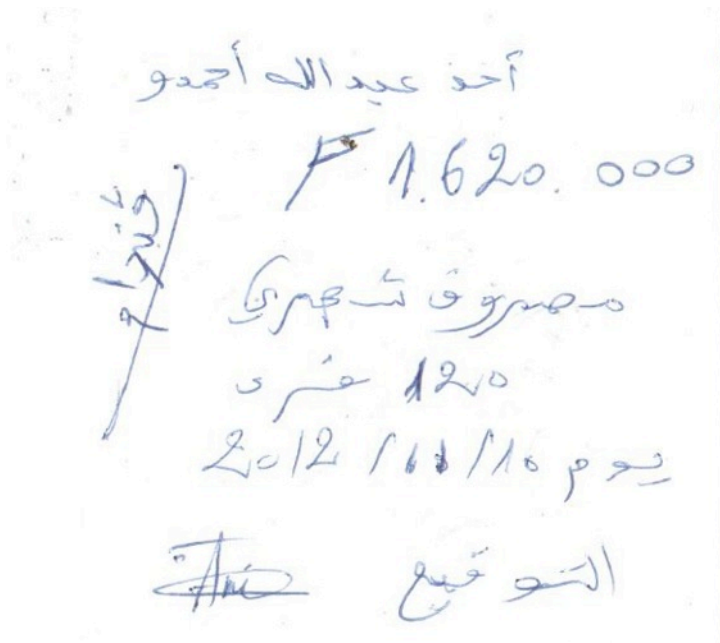 أخذ عبد الله أحمدو
F 1.620.000
مصروف شهري
120 فرد
يوم 10/11/2012
التوقيع